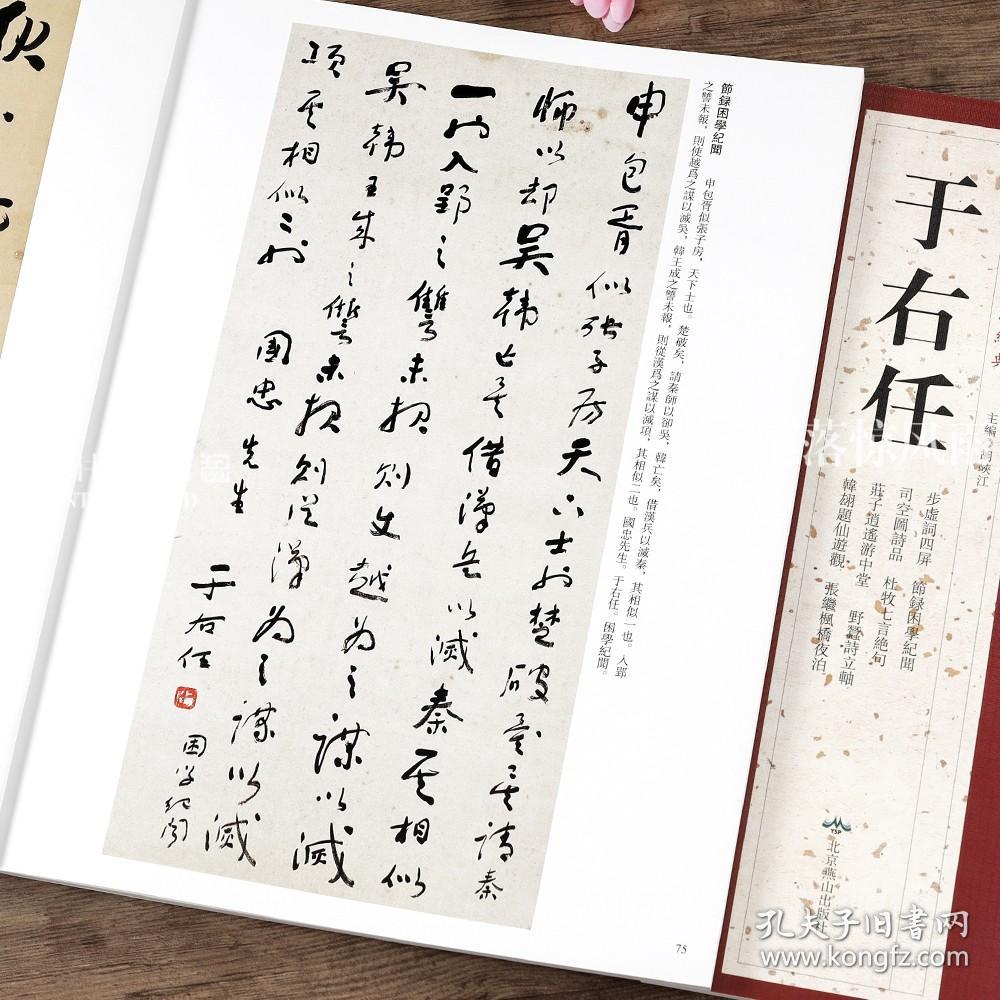 申包胥似張子房天下士也楚破矣請秦
師以却吴韓亡矣借漢兵以滅秦其相似
一也入郢之讐未報則使越為之謀以滅
吴韓王成之讐未報則從漢為之謀以滅
項其相似二也 國忠先生
于右任
困学紀聞
節録困學紀聞 申包胥似張子房，天下士也。楚破矣，請秦師以卻吳，韓亡矣，借漢兵以滅秦，其相似一也。入郢
之讐未報，則使越爲之謀以滅吳，韓王成之讐未報，則從漢爲之謀以滅項，其相似二也。國忠先生。于右任。困學紀聞。
75
于右任
主編
峽江
步虛詞四屏 節録困學紀聞
司空圖詩品 杜牧七言絶句
莊子逍遙游中堂 野蠶詩立軸
韓翃題仙遊觀 張繼楓橋夜泊
YSP
北京燕山出版社
孔夫子旧书网
www.kongfz.com